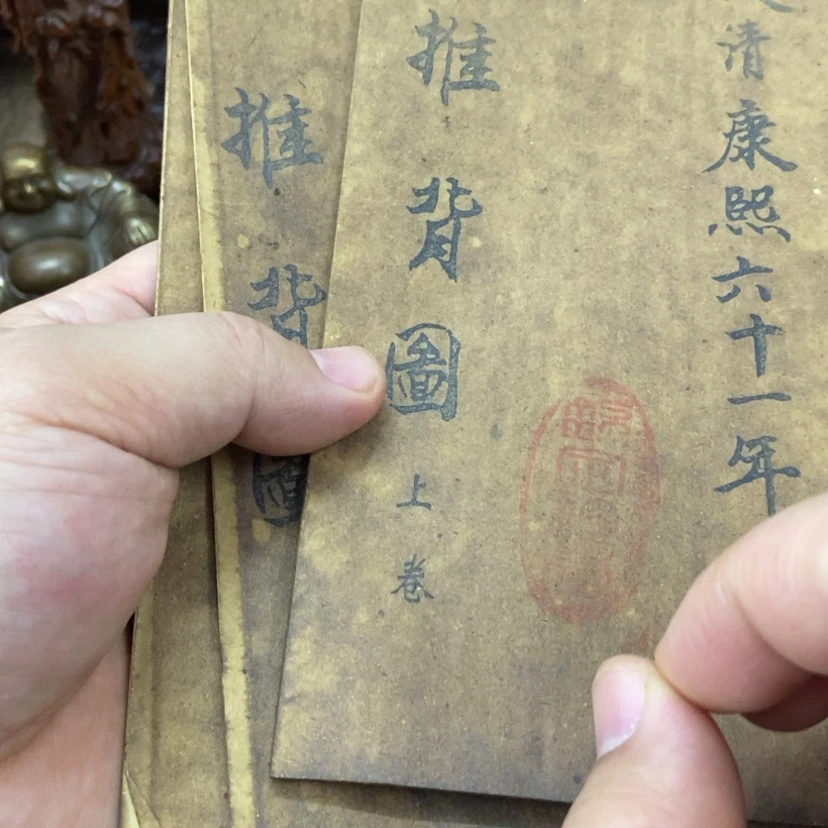 大清康熙六十一年
推背圖
上卷
推背圖